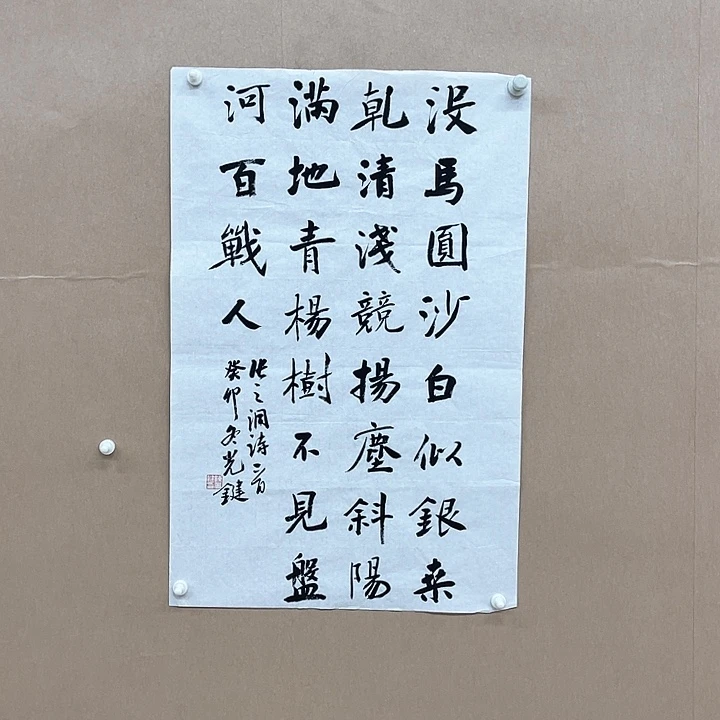 没馬圓沙白似銀桒
乹清淺競揚塵斜陽
満地青楊樹不見盤
河百戰人
张之洞詩一首
癸卯冬光鍵